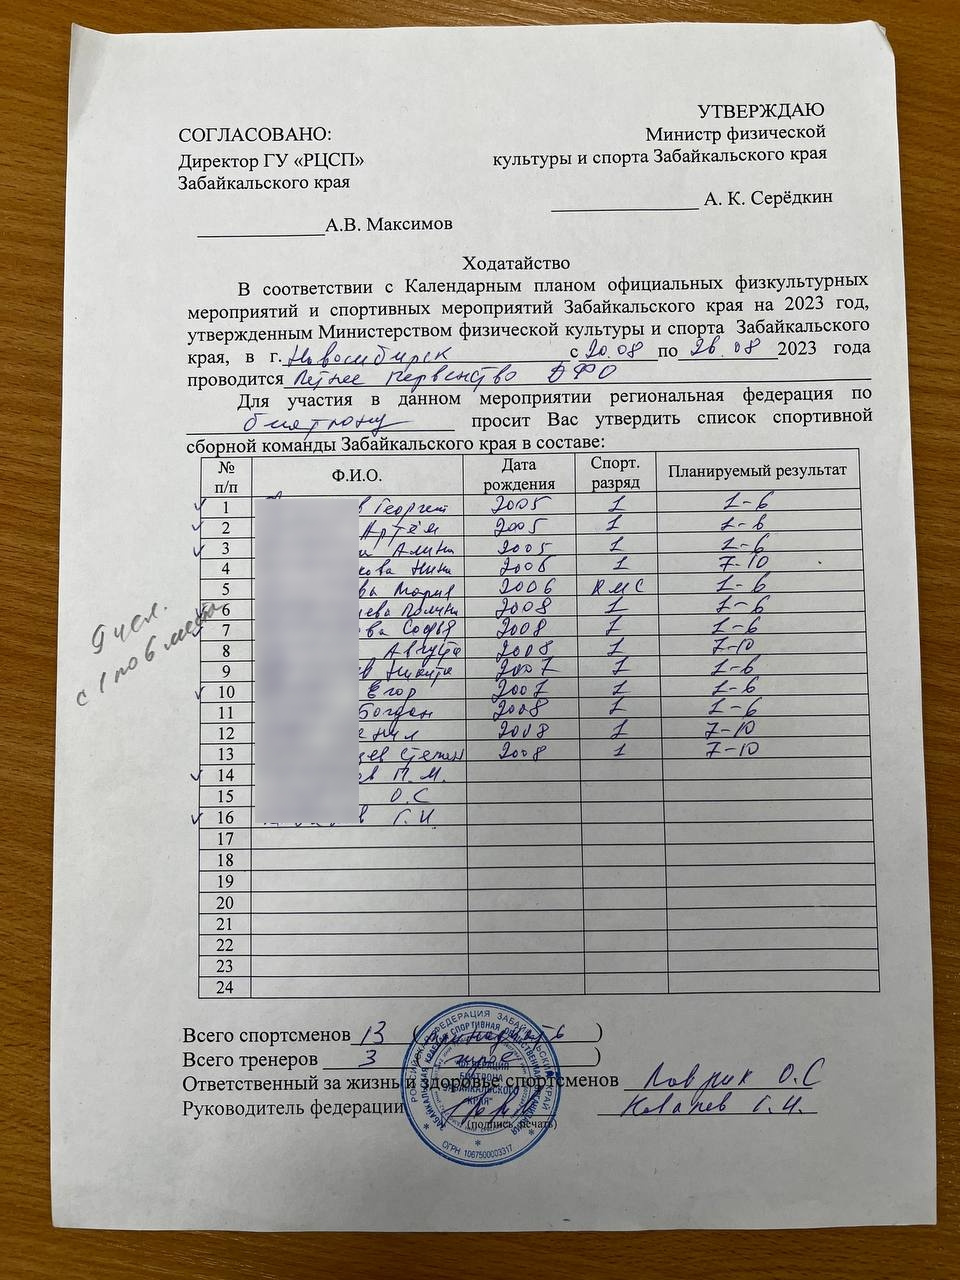 УТВЕРЖДАЮ
СОГЛАСОВАНО:
Министр физической
Директор ГУ «РЦСП»
культуры и спорта Забайкальского края
Забайкальского края
_______________ А. К. Серёдкин
_____________А.В. Максимов
Ходатайство
В соответствии с Календарным планом официальных физкультурных
мероприятий и спортивных мероприятий Забайкальского края на 2023 год,
утвержденным Министерством физической культуры и спорта Забайкальского
края, в г. Новосибирск с 20.08 по 26.08 2023 года
проводится Летнее Первенство ДФО
Для участия в данном мероприятии региональная федерация по
биатлону просит Вас утвердить список спортивной
сборной команды Забайкальского края в составе:
№ п/п Ф.И.О. Дата рождения Спорт. разряд Планируемый результат
1 в Георгий 2005 1 1-6
2 Артём 2005 1 1-6
3 Алина 2005 1 1-6
4 кова Нина 2006 1 7-10
5 ва Мария 2006 КМС 1-6
6 ева Полина 2008 1 1-6
7 ва Софья 2008 1 1-6
8 Августа 2008 1 7-10
9 в Никита 2007 1 1-6
10 Егор 2007 1 1-6
11 Богдан 2008 1 1-6
12 нил 2008 1 7-10
13 цев Степан 2008 1 7-10
14 ов П.М.
15 О.С
16 в Г.И.
17
18
19
20
21
22
23
24
9 чел.
с 1 по 6 место
Всего спортсменов 13 (тринадцать)
Всего тренеров 3 трое )
Ответственный за жизнь и здоровье спортсменов Лаврик О.С
Руководитель федерации Г.И.
(подпись, печать)
РОССИЙСКАЯ ФЕДЕРАЦИЯ ЗАБАЙКАЛЬСКИЙ КРАЙ
ЗАБАЙКАЛЬСКАЯ КРАЕВАЯ СПОРТИВНАЯ ОБЩЕСТВЕННАЯ ОРГАНИЗАЦИЯ
"ФЕДЕРАЦИЯ
БИАТЛОНА
ЗАБАЙКАЛЬСКОГО
КРАЯ"
ОГРН 1067500003317